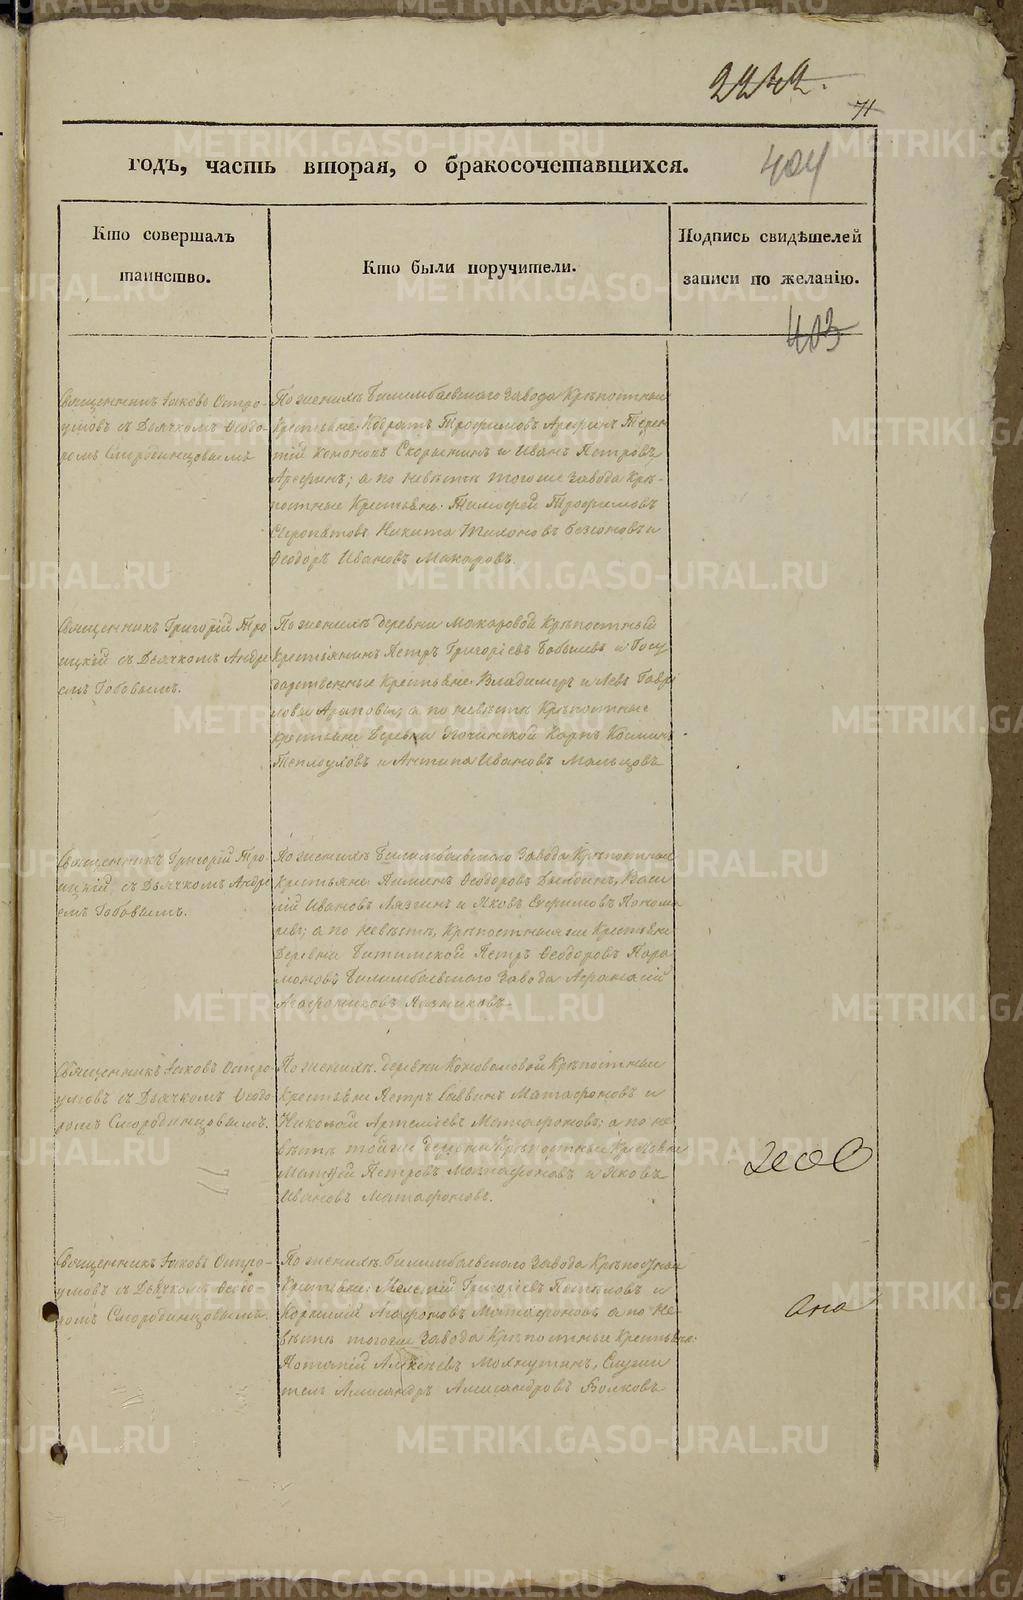 2242.
71
годъ, часть вторая, о бракосочетавшихся.
404
Кто совершалъ
таинство.
Кто были поручители.
Подпись свидѣтелей
записи по желанію.
403
Священникъ Іаковъ Остро-
умовъ съ Дьячкомъ Ѳеодо-
ромъ Смородинцовымъ
По женихѣ Билимбаевскаго завода Крѣпостные
Крестьяне: Кодратъ Трофимовъ Арефинъ Терен
тій Кононовъ Скорынинъ и Иванъ Петровъ
Арефинъ; а по невѣстѣ тогоже завода Крѣ-
постные Крестьяне: Тимофей Трофимовъ
Никита Тихоновъ и
Ѳеодоръ Ивановъ Макаровъ.
Священникъ Григорій Тро
ицкій съ Дьячкомъ Андре
емъ Бабовымъ.
По женихѣ деревни Макаровой Крѣпостный
крестьянинъ Петръ Григорьевъ и Госу
дарственные Крестьяне Владимеръ и Левъ Гаври
ловы; а по невѣстѣ Крѣпостные
крестьяне деревни Починской Карпъ Косминъ
Теплоуховъ и Антипа Ивановъ Мальцовъ
Священникъ Григорій Тро-
ицкій, съ Дьячкомъ Андре
емъ Бабовымъ.
По женихѣ Билимбаевскаго Завода Крѣпостные
Крестьяне: Пиминъ Ѳеодоровъ Васи
лій Ивановъ и Яковъ Понома
ревъ; а по невѣстѣ, Крѣпостныя же Крестьяне
Деревни Битимской Петръ Ѳеодоровъ Пара
моновъ Билимбаевскаго Завода Афанасій
Священникъ Іаковъ Остро-
умовъ съ Дьячкомъ Ѳеодо
ромъ Смородинцовымъ.
По женихѣ деревни Коноваловой Крѣпостные
крестьяне Петръ Саввинъ Матафоновъ и
Николай Артемьевъ Матафоновъ; а по не-
вѣстѣ тойже деревни Крѣпостные Крестьяне
Матвѣй Петровъ Матафоновъ и Яковъ
Ивановъ Матафоновъ.
Священникъ Іаковъ Остро-
умовъ съ Дьячкомъ Ѳеодо-
ромъ Смородинцовымъ
По женихѣ Билимбаевскаго Завода Крѣпостные
Крестьяне: Григорьевъ и
Корнилій Матафоновъ а по не-
вѣстѣ тогоже Завода Крѣпостные Крестьяне:
Потапій Алексѣевъ Служи
тель Александръ Александровъ Волковъ
Ана
METRIKI.GASO-URAL.RU